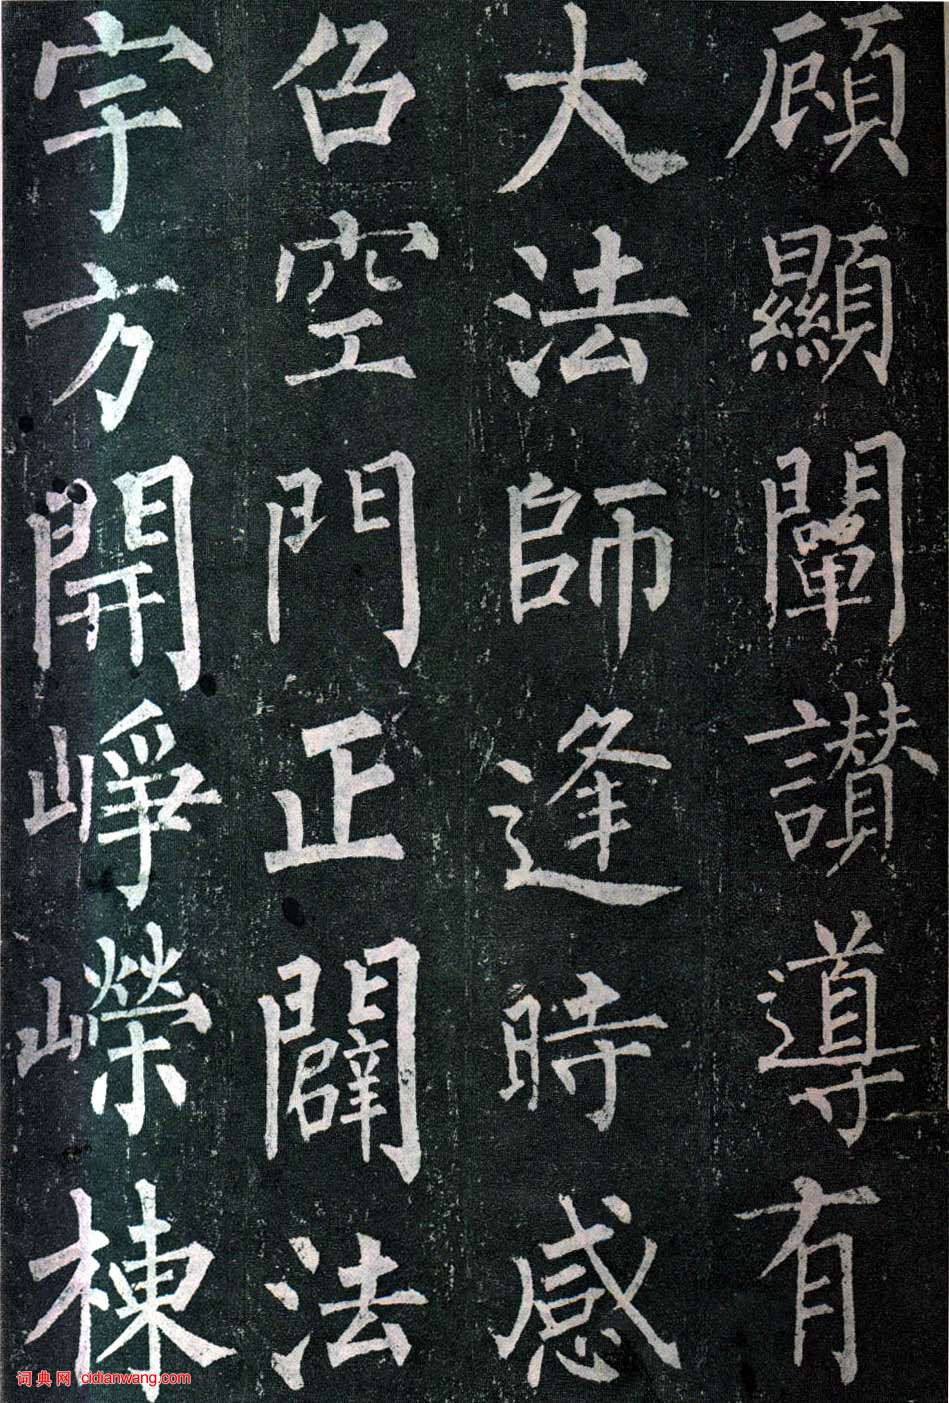 顧顯闡讃導有
大法師逢時感
召空門正闢法
宇方開崢嶸棟
词典网 cidianwang.com